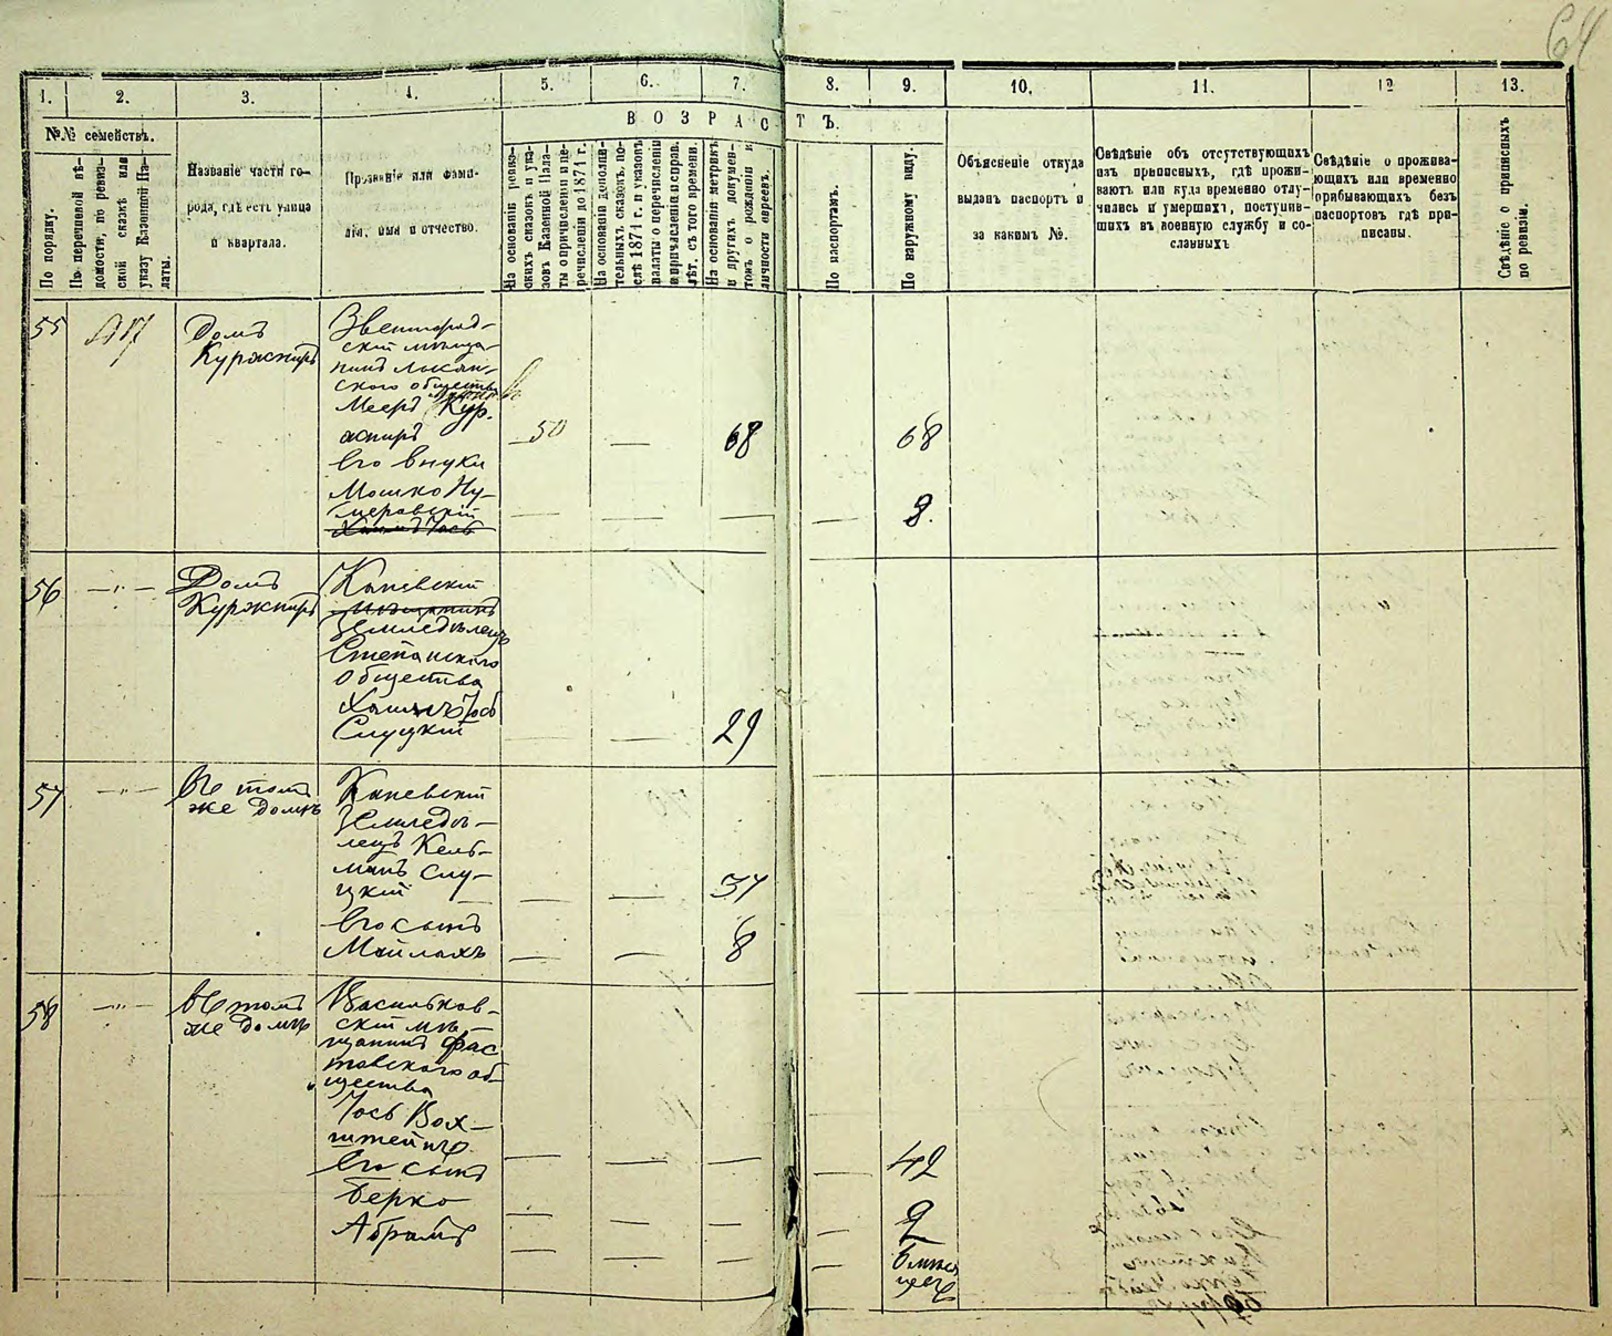 64
1. 2. 3. 4. 5. 6. 7. 8. 9. 10. 11. 12 13.
В О З Р А С Т Ъ.
№№ семействъ.
По порядку.
По перечневой вѣ-
домости, по ревиз-
ской сказкѣ или
указу Казенной Па-
латы.
Названіе части го-
рода, гдѣ есть улица
и квартала.
Прозваніе или фами-
лія, имя и отчество.
На основаніи ревиз-
скихъ сказокъ и ука-
зовъ Казенной Пала-
ты о причисленіи и пе-
речисленіи до 1871 г.
На основаніи дополни-
тельныхъ сказокъ, по-
слѣ 1871 г. и указовъ
палаты о перечисленіи
и причисленіи и справ.
лѣт. съ того времени.
На основаніи метрикъ
и другихъ докумен-
товъ о рожденіи и
личности евреевъ.
По паспортамъ.
По наружному виду.
Объясненіе откуда
выданъ паспортъ и
за какимъ №.
Свѣдѣніе объ отсутствующихъ
изъ приписныхъ, гдѣ прожи-
ваютъ или куда временно отлу-
чились и умершихъ, поступив-
шихъ въ военную службу и со-
сланныхъ
Свѣдѣніе о прожива-
ющихъ или временно
прибывающихъ безъ
паспортовъ гдѣ при-
писаны.
Свѣдѣніе о приписныхъ
по ревизіи.
55
Домъ
Куржниръ
Звенигород-
скій мѣща-
нинъ
ского общества
Мееръ Кур-
жниръ
50 — 68 68
Его внуки
Мошко
— — — — 8.
56 — " —
Домъ
Куржниръ
Каневскій
мѣщанинъ
Земледѣлецъ
Степанского
Общества
Хаимъ Іось
Слуцкій
— — 29
57 — " —
Въ томъ
же домѣ
Каневскій
Земледѣ-
лецъ Кель-
манъ Слу-
цкій
— — 37
Его сынъ
Майлахъ
— — 8
58 — " —
Въ томъ
же домѣ
Васильков-
скій мѣ-
щанинъ Фас
товского об-
щества
Іось Вох-
штейнъ
— — — — 42
Его сынъ
Берко
— — — — 9
Абрамъ
— — — —